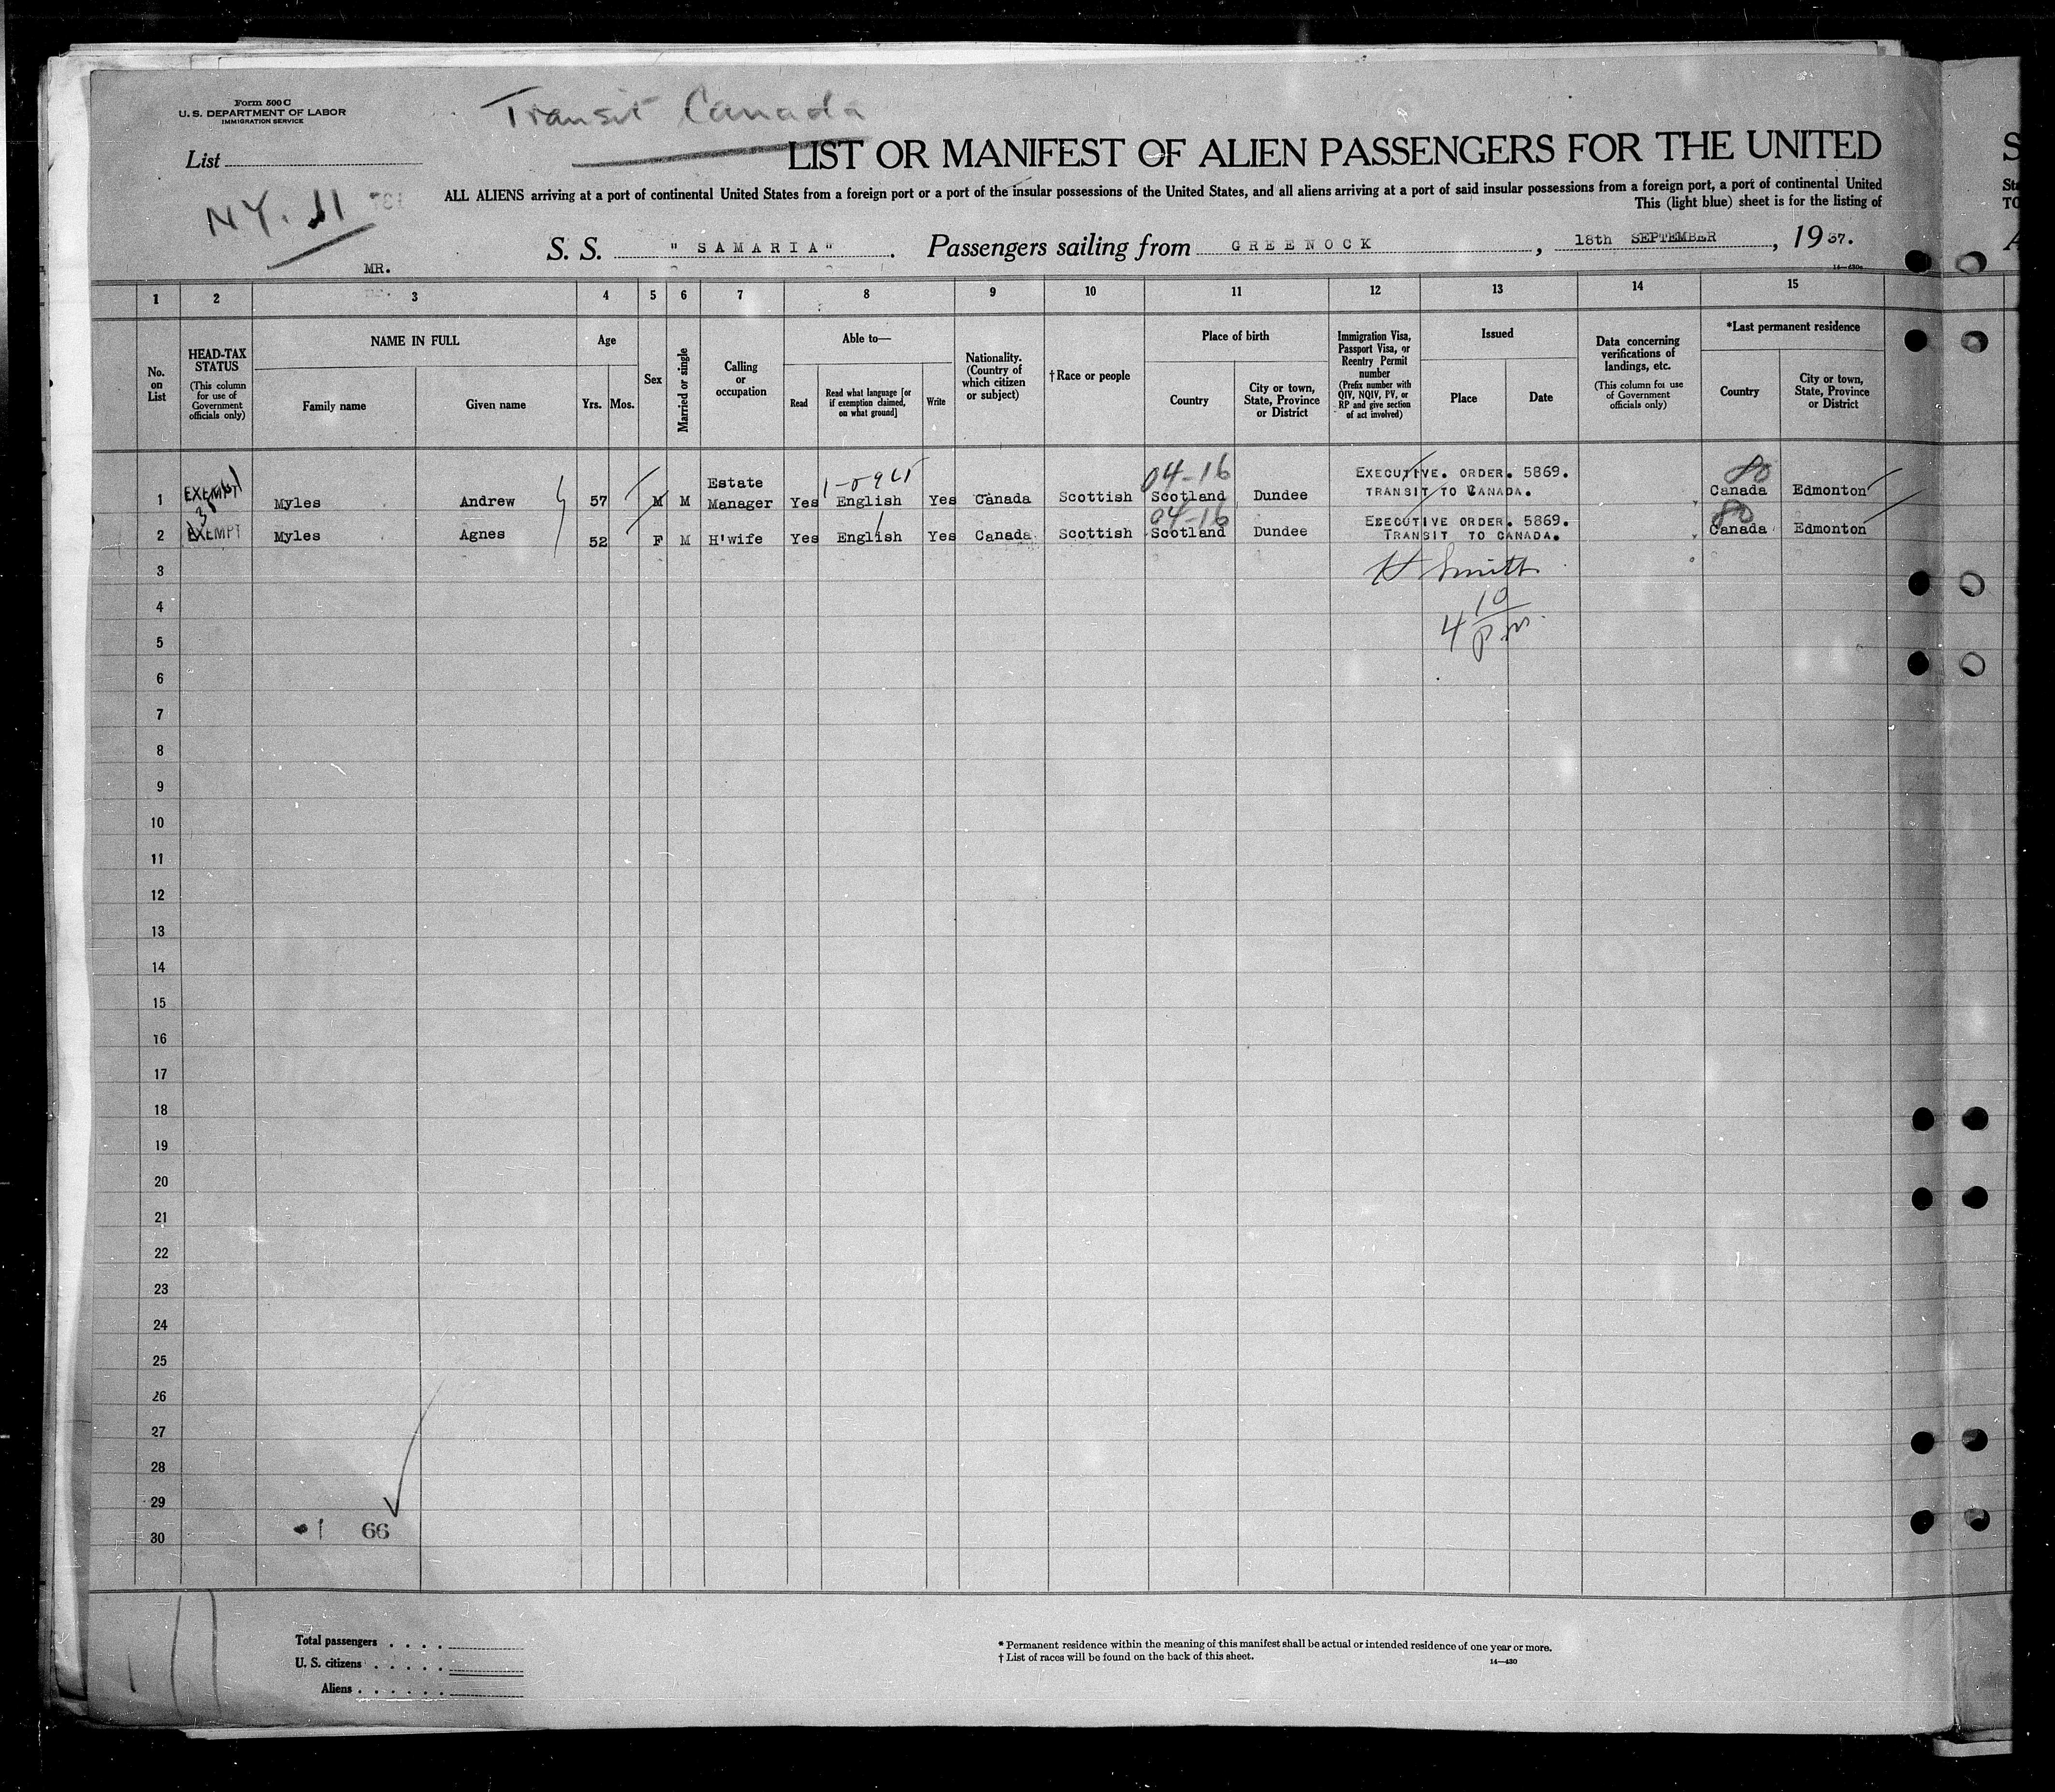 Form 500 C
U. S. DEPARTMENT OF LABOR
IMMIGRATION SERVICE
Transit Canada
List
LIST OR MANIFEST OF ALIEN PASSENGERS FOR THE UNITED
ALL ALIENS arriving at a port of continental United States from a foreign port or a port of the insular possessions of the United States, and all aliens arriving at a port of said insular possessions from a foreign port, a port of continental United
This (light blue) sheet is for the listing of
NY. 11
S. S. "SAMARIA". Passengers sailing from GREENOCK, 18th SEPTEMBER, 1937.
MR.
14—430
1 2 3 4 5 6 7 8 9 10 11 12 13 14 15
No. on List
HEAD-TAX STATUS
(This column for use of Government officials only)
NAME IN FULL
Family name
Given name
Age
Yrs.
Mos.
Sex
Married or single
Calling or occupation
Able to—
Read
Read what language [or if exemption claimed, on what ground]
Write
Nationality. (Country of which citizen or subject)
†Race or people
Place of birth
Country
City or town, State, Province or District
Immigration Visa, Passport Visa, or Reentry Permit number
(Prefix number with QIV, NQIV, PV, or RP and give section of act involved)
Issued
Place
Date
Data concerning verifications of landings, etc.
(This column for use of Government officials only)
*Last permanent residence
Country
City or town, State, Province or District
04-16
80
1 EXEMPT Myles Andrew 57 M M Estate Manager Yes English Yes Canada Scottish Scotland Dundee EXECUTIVE. ORDER. 5869. TRANSIT TO CANADA. Canada Edmonton
04-16
80
2 EXEMPT Myles Agnes 52 F M H'wife Yes English Yes Canada Scottish Scotland Dundee EXECUTIVE ORDER. 5869. TRANSIT TO CANADA. Canada Edmonton
3
H Smith
4
4 10 p.m.
5
6
7
8
9
10
11
12
13
14
15
16
17
18
19
20
21
22
23
24
25
26
27
28
29
30
66
Total passengers
U. S. citizens
Aliens
* Permanent residence within the meaning of this manifest shall be actual or intended residence of one year or more.
† List of races will be found on the back of this sheet.
14—430